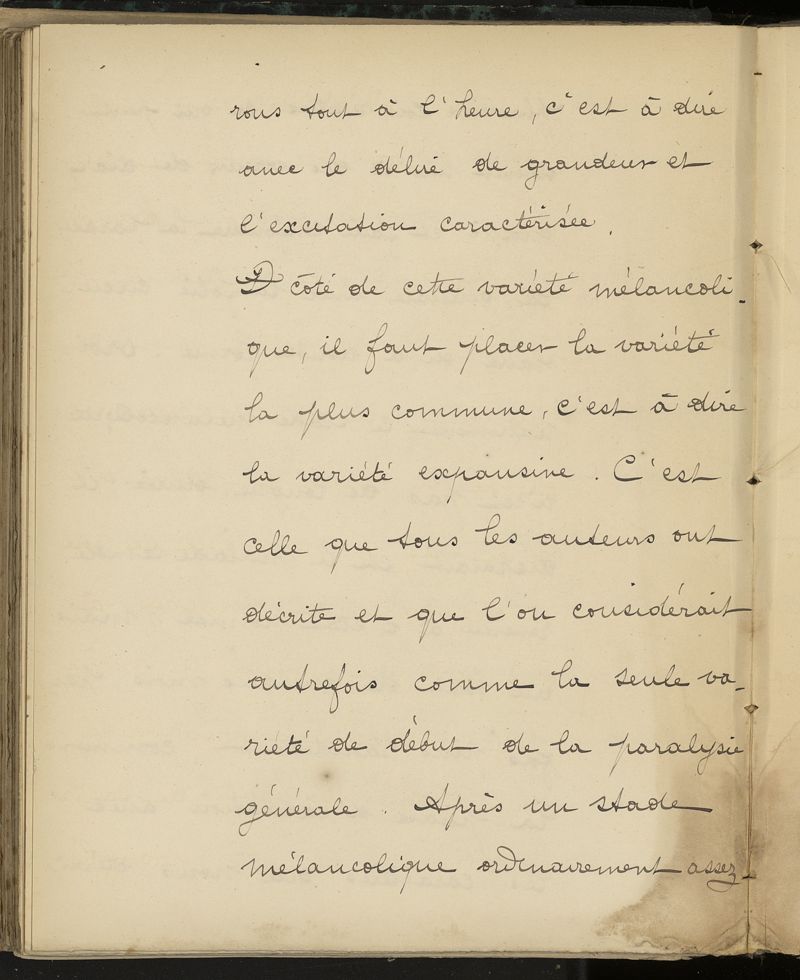 rons tout à l'heure, c'est à dire
avec le délire de grandeur et
l'excitation caractérisée.
A côté de cette variété mélancoli-
que, il faut placer la variété
la plus commune, c'est à dire
la variété expansive. C'est
celle que tous les auteurs ont
décrite et que l'on considérait
autrefois comme la seule va-
riété de début de la paralysie
générale. Après un stade
mélancolique ordinairement assez